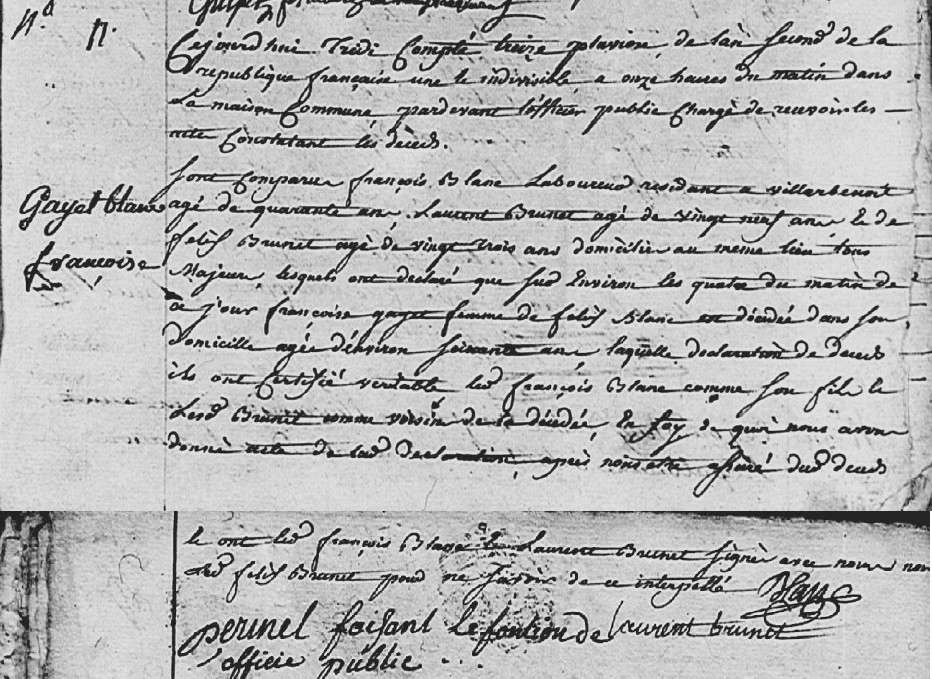 n.d n.
Cejourdhui Tridi Compté treize pluviose de lan second de la
republique françoise une le indivisible a onze heures du matin dans
La maison Commune pardevant lofficier public Chargé de recevoir les
acte Constatant les décès.
Sont Comparu françois Blanc Laboureur residant a villarbenoit
Gayet blanc
agé de quarante ans Laurent Brunet agé de vingt neuf ans & de
felix Brunet agé de vingt trois ans domicilié au meme lieu tous
françoise
Majeur, lesquels ont declaré que sur Environ les quatre du matin de
ce jour françoise gayet femme de felix Blanc est décédée dans son
domicille agée dénviron soixante ans laquelle declaration de decès
ils ont Certifié veritable led françois Blanc comme son fils le
Led Brunet comme voisin de la décédée, En foy de quoi nous avons
donné acte de lad declaration après nous etre assuré dud decès
le ont led françois Blanc & Laurent Brunet signé avec nous non
led felix Brunet pour ne savoir de ce interpellé Blanc
perinel faisant le fontion de laurent brunet
officie públic ...